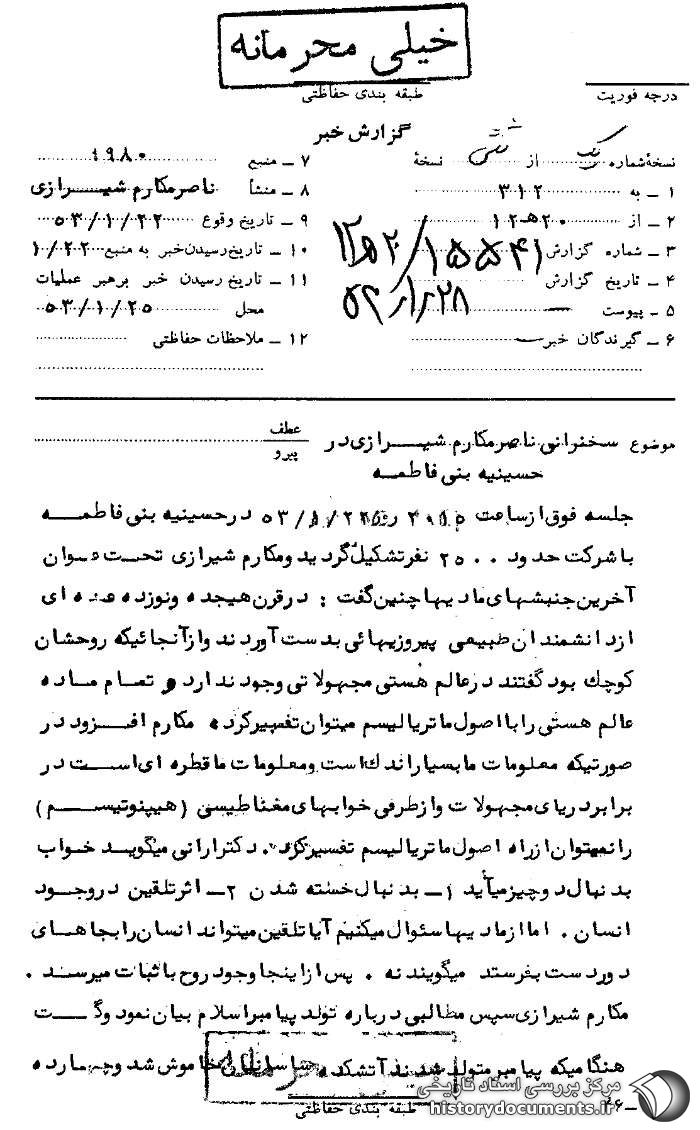 خیلی محرمانه
طبقه بندی حفاظتی
درجه فوریت
گزارش خبر
نسخهٔ شماره یک از نسخهٔ
۱ ــ به ۳۱۲
۲ ــ از ۲۰ هـ ۱۲
۳ ــ شماره گزارش ۱۵۵۴۱/۲۰ هـ ۱۲
۴ ــ تاریخ گزارش ۵۳/۱/۲۸
۵ ــ پیوست
۶ ــ گیرندگان خبر
۷ ــ منبع ۱۹۸۰
۸ ــ منشأ ناصرمکارم شیرازی
۹ ــ تاریخ وقوع ۵۳/۱/۲۲
۱۰ ــ تاریخ رسیدن خبر به منبع ۱/۲۲
۱۱ ــ تاریخ رسیدن خبر برهبر عملیات
محل ۵۳/۱/۲۵
۱۲ ــ ملاحظات حفاظتی
موضوع سخنرانی ناصرمکارم شیرازی در
حسینیه بنی فاطمه
عطف
پیرو
جلسه فوق ازساعت روز ۵۳/۱/۲۲ درحسینیه بنی فاطمه
با شرکت حدود ۲۵۰۰ نفرتشکیل گردید ومکارم شیرازی تحت عنوان
آخرین جنبشهای مادیها چنین گفت : درقرن هیجده ونوزده عده ای
ازدانشمندان طبیعی پیروزیهائی بدست آوردند وازآنجائیکه روحشان
کوچك بود گفتند درعالم هستی مجهولاتی وجود ندارد و تمام ماده
عالم هستی را با اصول ماتریالیسم میتوان تفسیرکرد . مکارم افزود در
صورتیکه معلومات ما بسیار اندك است ومعلومات ما قطره ای است در
برابر دریای مجهولات وازطرفی خوابهای مغناطیسی (هیپنوتیسم)
را نمیتوان ازراه اصول ماتریالیسم تفسیرکرد . دکترارانی میگوید خواب
بدنبال دوچیز میآید ۱ــ بدنبال خسته شدن ۲ــ اثرتلقین دروجود
انسان . اما ازمادیها سئوال میکنیم آیا تلقین میتواند انسان را بجاهای
دوردست بفرستد میگویند نه . پس ازاینجا وجود روح باثبات میرسد .
مکارم شیرازی سپس مطالبی درباره تولد پیامبراسلام بیان نمود وگفت
هنگامیکه پیامبر متولد شدند آتشکده ساسانیان خاموش شد وچهارده
محرمانه
طبقه بندی حفاظتی
ــ ۶
مرکز بررسی اسناد تاریخی
historydocuments.ir